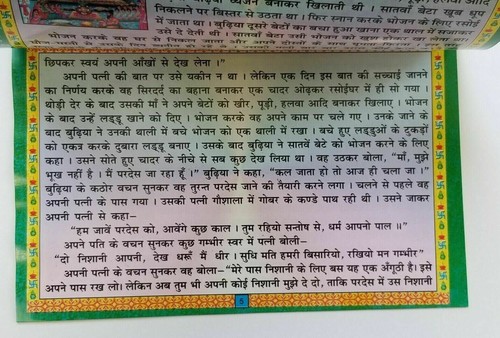 व्यंजन बनाकर खिलाती थी । सातवाँ बेटा खूब धूप
निकलने पर बिस्तर से उठता था । फिर स्नान करके भोजन के लिए रसोई
में जाता था । बुढ़िया दूसरे बेटों का बचा हुआ खाना एक थाली में सजाकर
उसे दे देती थी । सातवाँ बेटा उसी भोजन को
भोजन करके वह घर से निकल जाता और अपने दोस्तों के साथ
छिपकर स्वयं अपनी आँखों से देख लेना ।"
अपनी पत्नी की बात पर उसे यकीन न था । लेकिन एक दिन इस बात की सच्चाई जानने
का निर्णय करके वह सिरदर्द का बहाना बनाकर एक चादर ओढ़कर रसोईघर में ही सो गया ।
थोड़ी देर के बाद उसकी माँ ने अपने बेटों को खीर, पूड़ी, हलवा आदि बनाकर खिलाए । भोजन
के बाद उन्हें लड्डू खाने को दिए । भोजन करके वह अपने काम पर चले गए । उनके जाने के
बाद बुढ़िया ने उनकी थाली में बचे भोजन को एक थाली में रखा । बचे हुए लड्डुओं के टुकड़ों
को एकत्र करके दुबारा लड्डू बनाए । उसके बाद बुढ़िया ने सातवें बेटे को भोजन करने के लिए
कहा । उसने सोते हुए चादर के नीचे से सब कुछ देख लिया था । वह उठकर बोला, "माँ, मुझे
भूख नहीं है । मैं परदेस जा रहा हूँ ।" बुढ़िया ने कहा, "कल जाता हो तो आज ही चला जा ।"
बुढ़िया के कठोर वचन सुनकर वह तुरन्त परदेस जाने की तैयारी करने लगा । चलने से पहले वह
अपनी पत्नी के पास गया । उसकी पत्नी गौशाला में गोबर के कण्डे पाथ रही थी । उसने जाकर
अपनी पत्नी से कहा–
"हम जावें परदेस को, आवेंगे कुछ काल । तुम रहियो सन्तोष से, धर्म आपनो पाल ॥"
अपने पति के वचन सुनकर कुछ गम्भीर स्वर में पत्नी बोली–
"दो निशानी आपनी, देख धरूँ मैं धीर । सुधि मति हमरी बिसारियो, रखियो मन गम्भीर"
अपनी पत्नी के वचन सुनकर वह बोला–"मेरे पास निशानी के लिए बस यह एक अँगूठी है। इसे
अपने पास रख लो। लेकिन अब तुम भी अपनी कोई निशानी मुझे दे दो, ताकि परदेस में उस निशानी
5